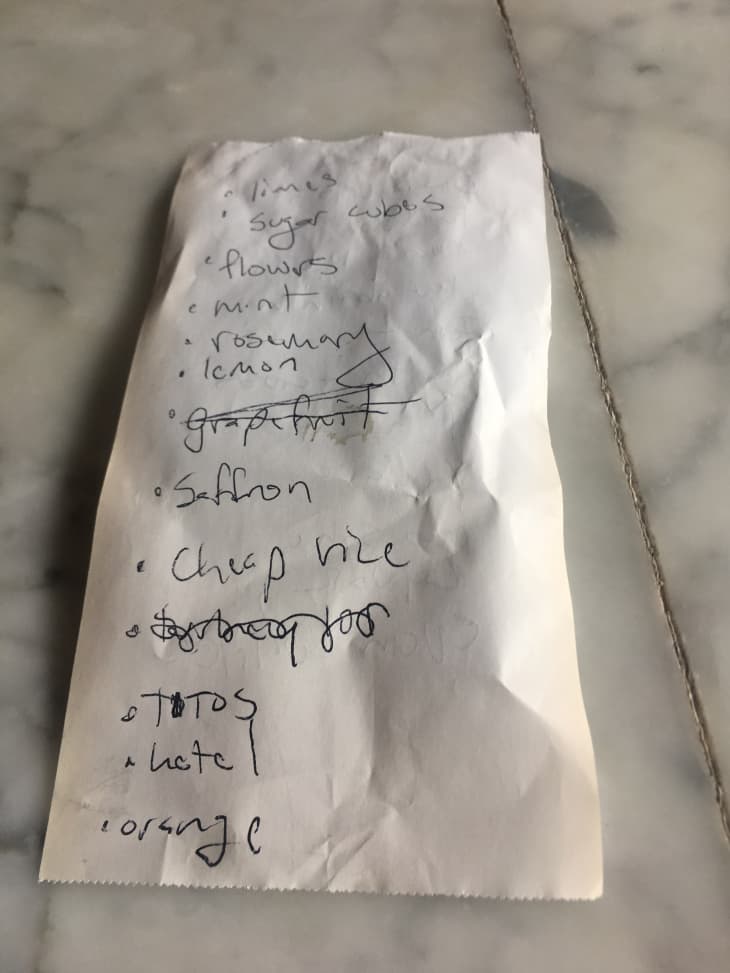 · limes
· sugar cubes
· flowrs
· mint
· rosemary
· lemon
· grapefruit
· Saffron
· Cheap rice
· TITOS
· ketel
· orange